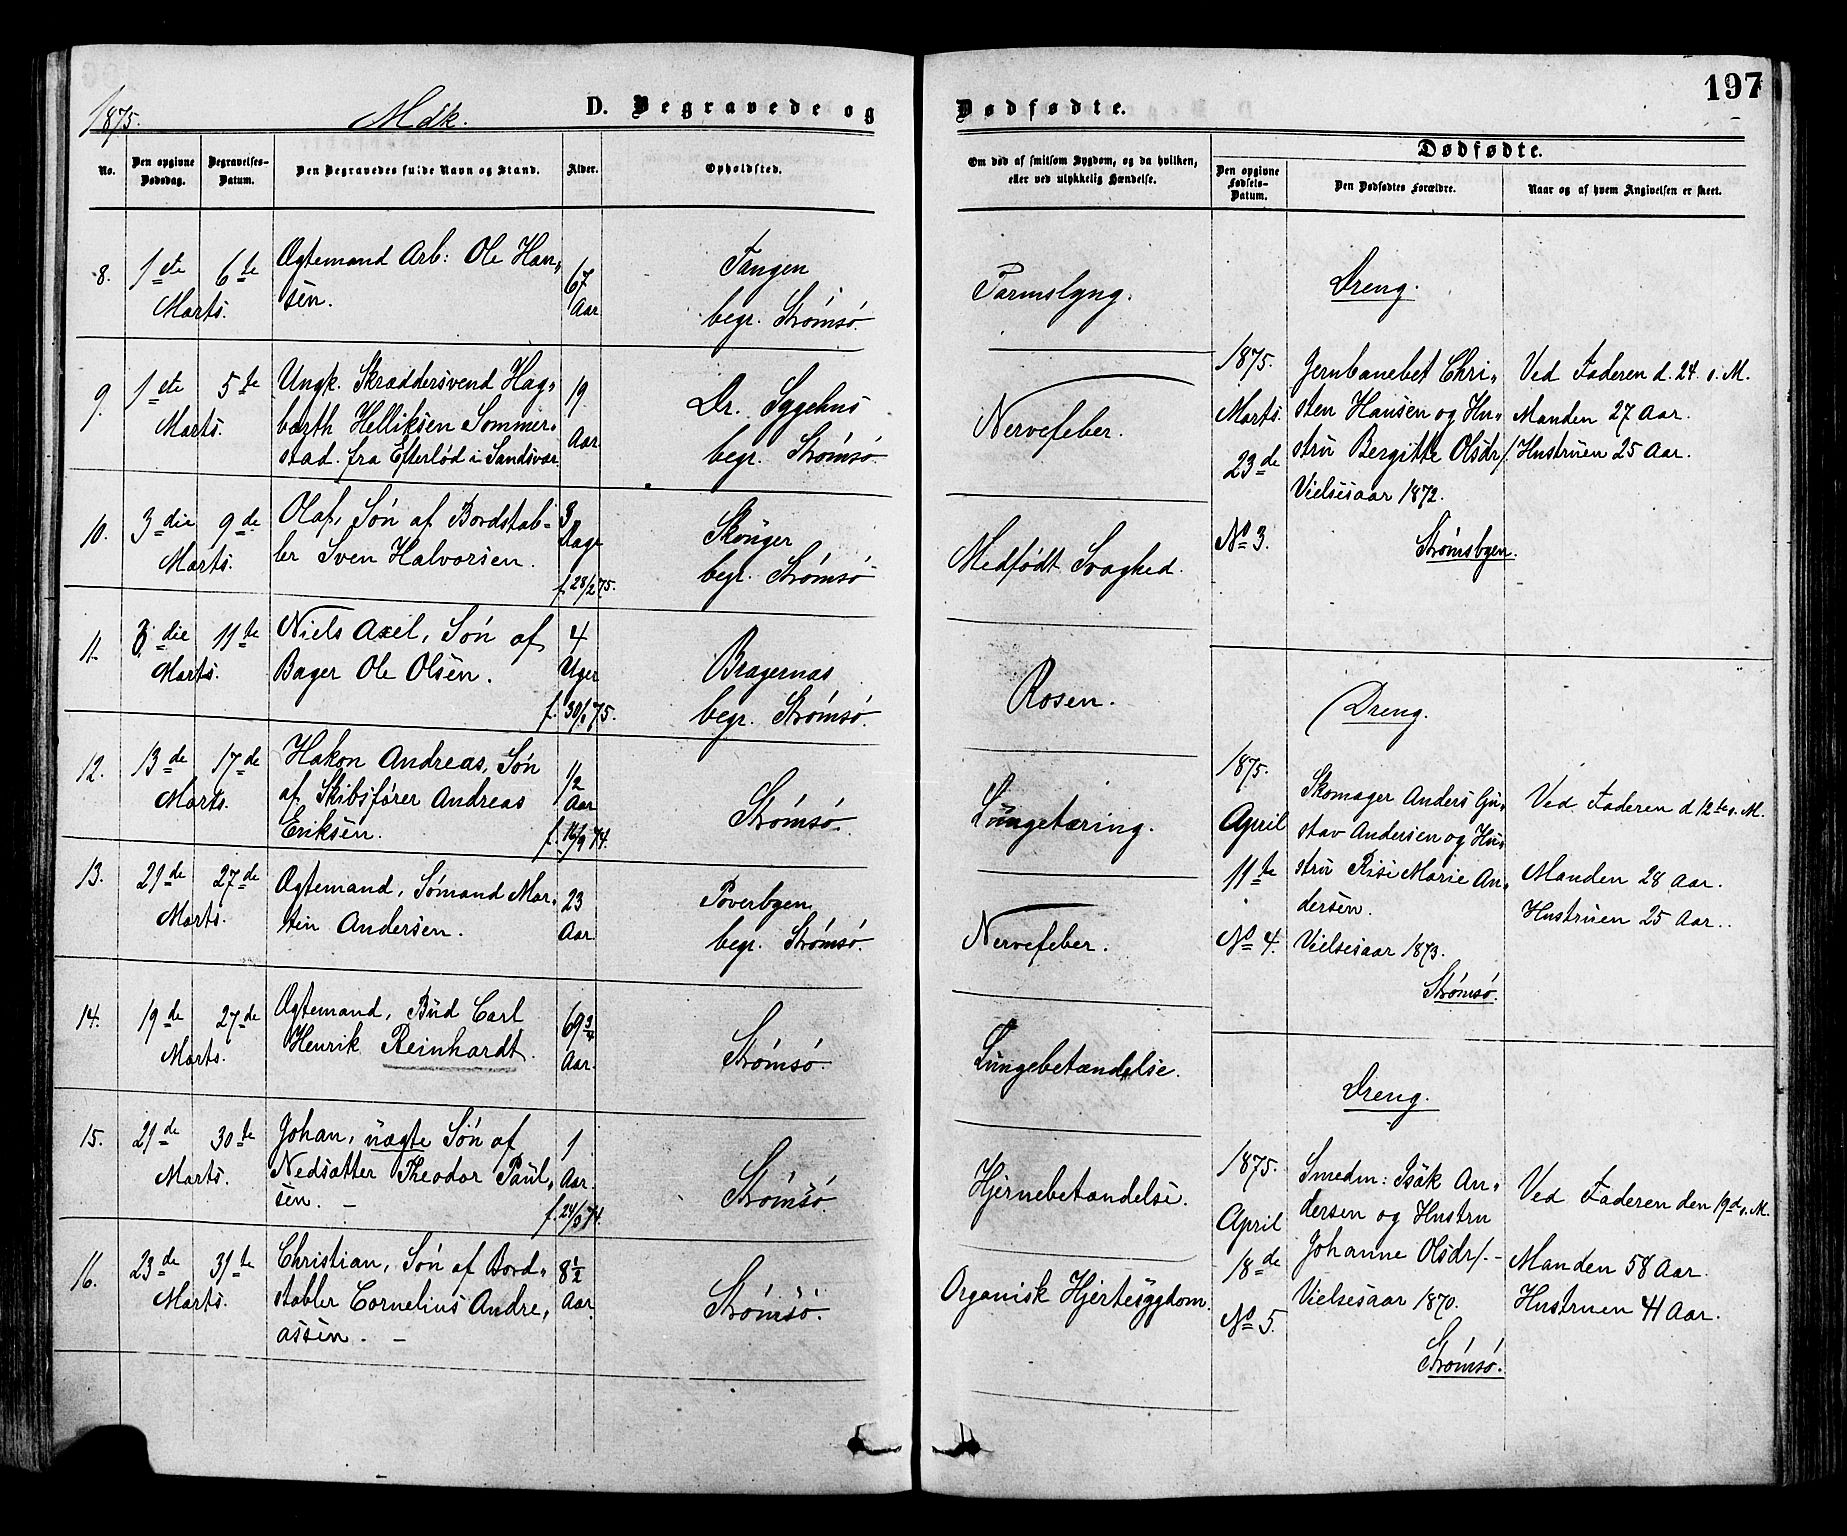 197
1875. Mdk. D. Begravede og Dødfødte.
No.
Den opgivne Dødsdag.
Begravelses-Datum.
Den Begravedes fulde Navn og Stand.
Alder.
Opholdsted.
Om død af smitsom Sygdom, og da hvilken,
eller ved ulykkelig Hændelse.
Dødfødte.
Den opgivne Fødsels-Datum.
Den Dødfødtes Forældre.
Naar og af hvem Angivelsen er skeet.
8. 1ste Marts. 6te
Ægtemand Arb: Ole Han„
sen.
67 Aar
Tangen
begr. Strømsø.
Tarmslyng.
9. 1ste Marts. 5te
Ungk. Skræddersvend Hag„
barth Helliksen Sommer„
stad. fra Efterlød i Sandsvær
19 Aar
Dr. Sygehus
begr. Strømsø.
Nervefeber.
10. 3die Marts. 9de
Olaf, Søn af Bordstab-
ler Sven Halvorsen.
3 Dage
f. 28/2 75.
Skoger
begr. Strømsø
Medfødt Svaghed.
11. die Marts. 11te
Niels Axel, Søn af
Bager Ole Olsen.
4 Uger
f. 30/1 75.
Bragernæs
begr. Strømsø.
Rosen.
12. 13de Marts. 17de
Hakon Andreas, Søn
af Skibsfører Andreas
Eriksen.
1/2 Aar
f. 16/9 74.
Strømsø.
Lungetæring.
13. 21de Marts. 27de
Ægtemand, Sømand Mar„
tin Andersen.
23 Aar
Toverbyen
begr. Strømsø.
Nervefeber.
14. 19de Marts. 27de
Ægtemand, Bud Carl
Henrik Reinhardt.
69 3/4 Aar.
Strømsø.
Lungebetændelse.
15. 21de Marts. 30te
Johan, uægte Søn af
Nedsætter Theodor Paul„
sen. -
1 Aar.
f. 24/3 74.
Strømsø.
Hjernebetændelse.
16. 23de Marts. 31te
Christian, Søn af Bord„
stabler Cornelius Andre„
assen. -
8 1/2 Aar.
Strømsø.
Organisk Hjertesygdom.
Dreng.
1875.
Marts.
23de
No 3.
Jernbanebet Chri„
sten Hansen og Hu„
stru Bergitte Olsdr/.
Vielsesaar 1872.
Strømsbyen.
Ved Faderen d. 24. s. M.
Manden 27 Aar.
Hustruen 25 Aar.
Dreng.
1875.
April
11te
No 4.
Skomager Anders Gu„
stav Andersen og Hu„
stru Risi Marie An„
dersen.
Vielsesaar 1873.
Strømsø.
Ved Faderen d 12te s. M.
Manden 28 Aar.
Hustruen 25 Aar..
Dreng.
1875.
April
18de
No 5.
Smedm: Isak An„
dersen og Hustru
Johanne Olsdr/. -
Vielsesaar 1870.
Strømsø.
Ved Faderen den 19d s. M.
Manden 58 Aar.
Hustruen 41 Aar.